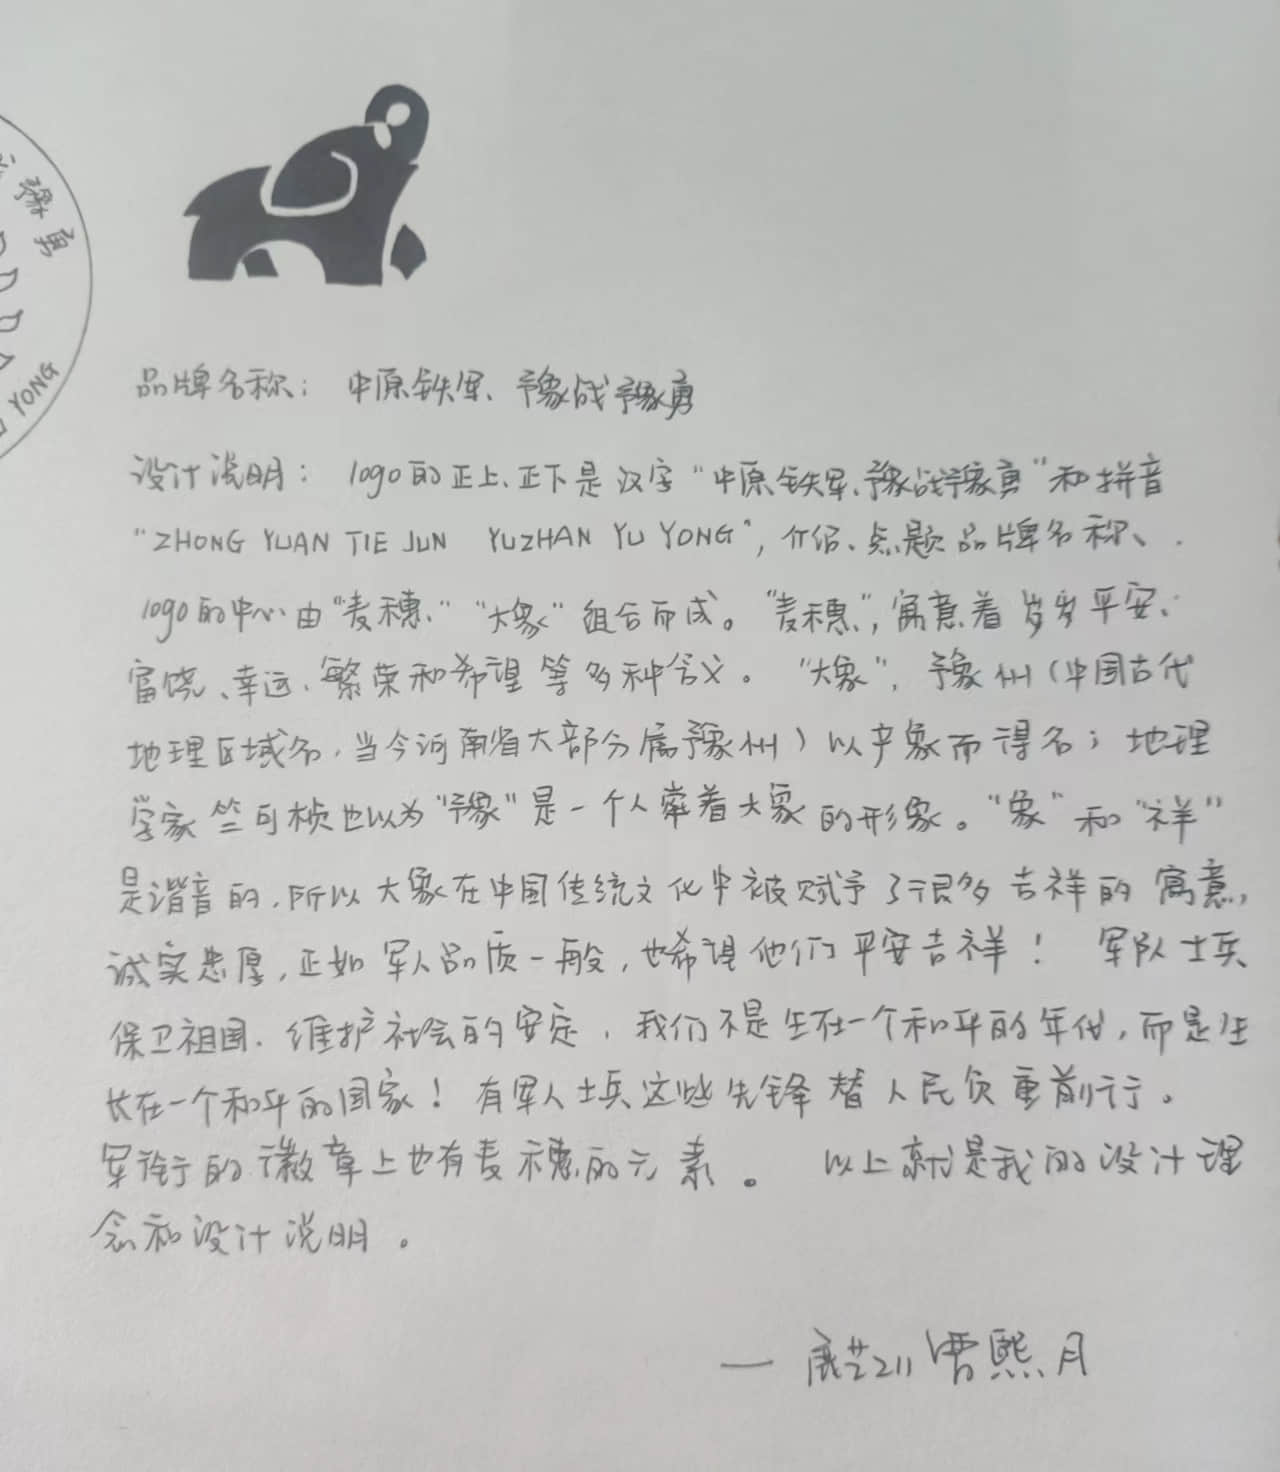 豫勇
YONG
品牌名称：中原铁军、豫战豫勇
设计说明：logo的正上、正下是汉字“中原铁军、豫战豫勇”和拼音
“ZHONG YUAN TIE JUN YUZHAN YU YONG”，介绍、点题品牌名称、.
logo的中心由“麦穗、”“大象”组合而成。“麦穗”，寓意着岁岁平安、
富饶、幸运、繁荣和希望等多种含义。“大象”，豫州（中国古代
地理区域名，当今河南省大部分属豫州）以产象而得名；地理
学家竺可桢也以为“豫”是一个人牵着大象的形象。“象”和“祥”
是谐音的，所以大象在中国传统文化中被赋予了很多吉祥的寓意，
诚实忠厚，正如军人品质一般，也希望他们平安吉祥！军队士兵
保卫祖国、维护社会的安定，我们不是生在一个和平的年代，而是生
长在一个和平的国家！有军人士兵这些先锋替人民负重前行。
军衔的徽章上也有麦穗的元素。以上就是我的设计理
念和设计说明。
— 展艺211 曹熙月